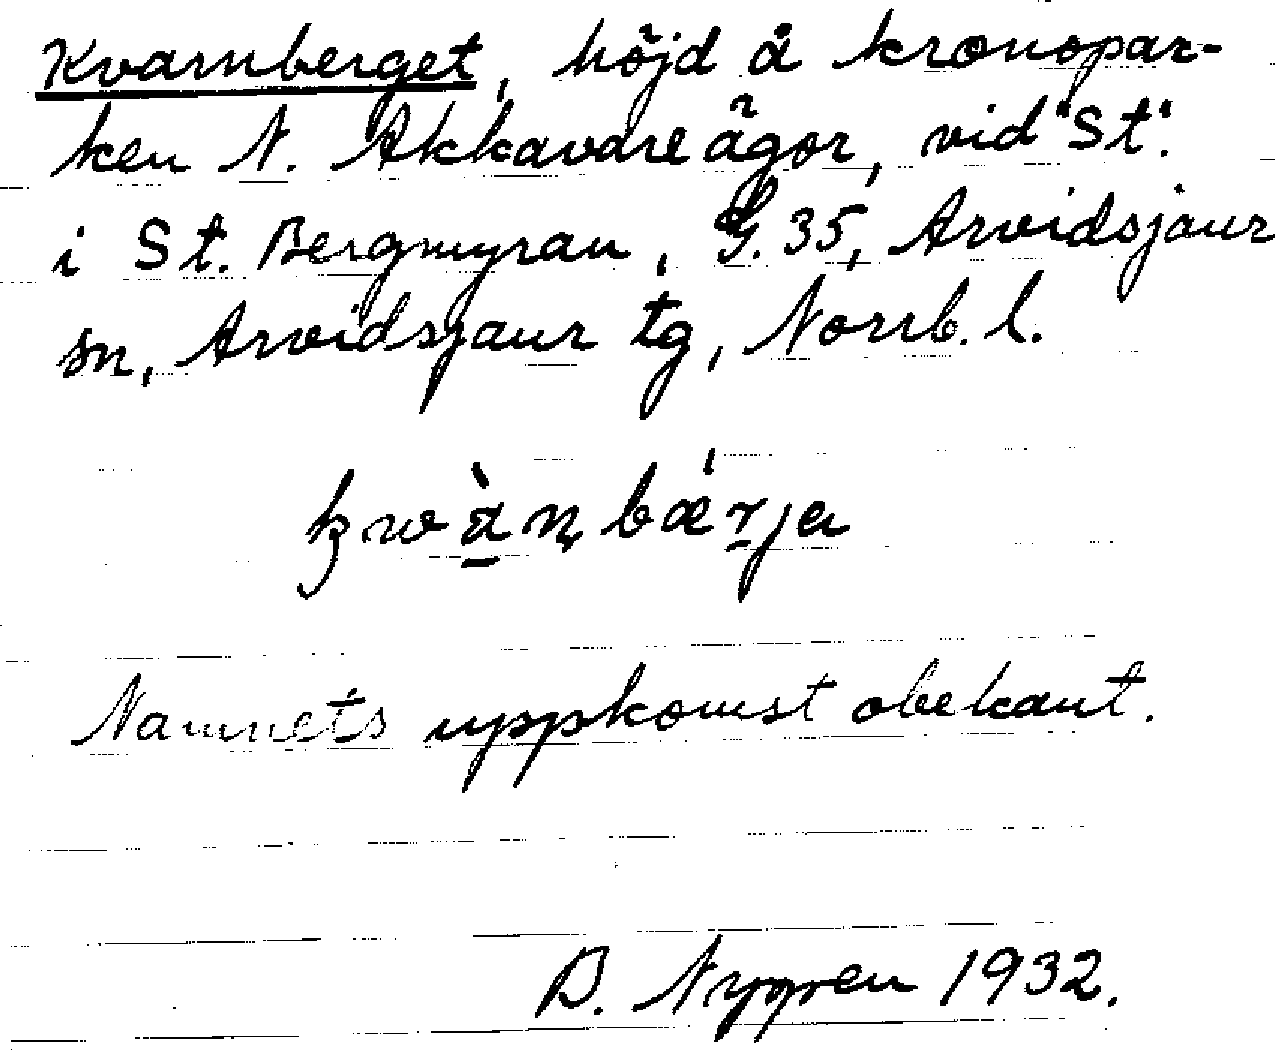 Kvarnberget, höjd å kronopar-
ken N. Akkavare ägor, vid "St".
i St. Bergmyran, G. 35, Arvidsjaur
sn, Arvidsjaur tg, Norrb. l.
kwànbǽrja
Namnets uppkomst obekant.
B. Nygren 1932.